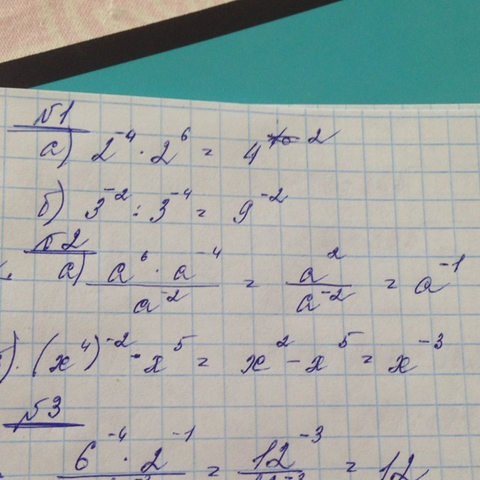 №1
а) 2^-4 · 2^6 = 4^2
б) 3^-2 : 3^-4 = 9^-2
№2
а) (a^6 · a^-4) / a^-2 = a^2 / a^-2 = a^-1
. (x^4)^-2 · x^5 = x^2 - x^5 = x^-3
№3
6^-4 · 2^-1 = 12^-3 = 12